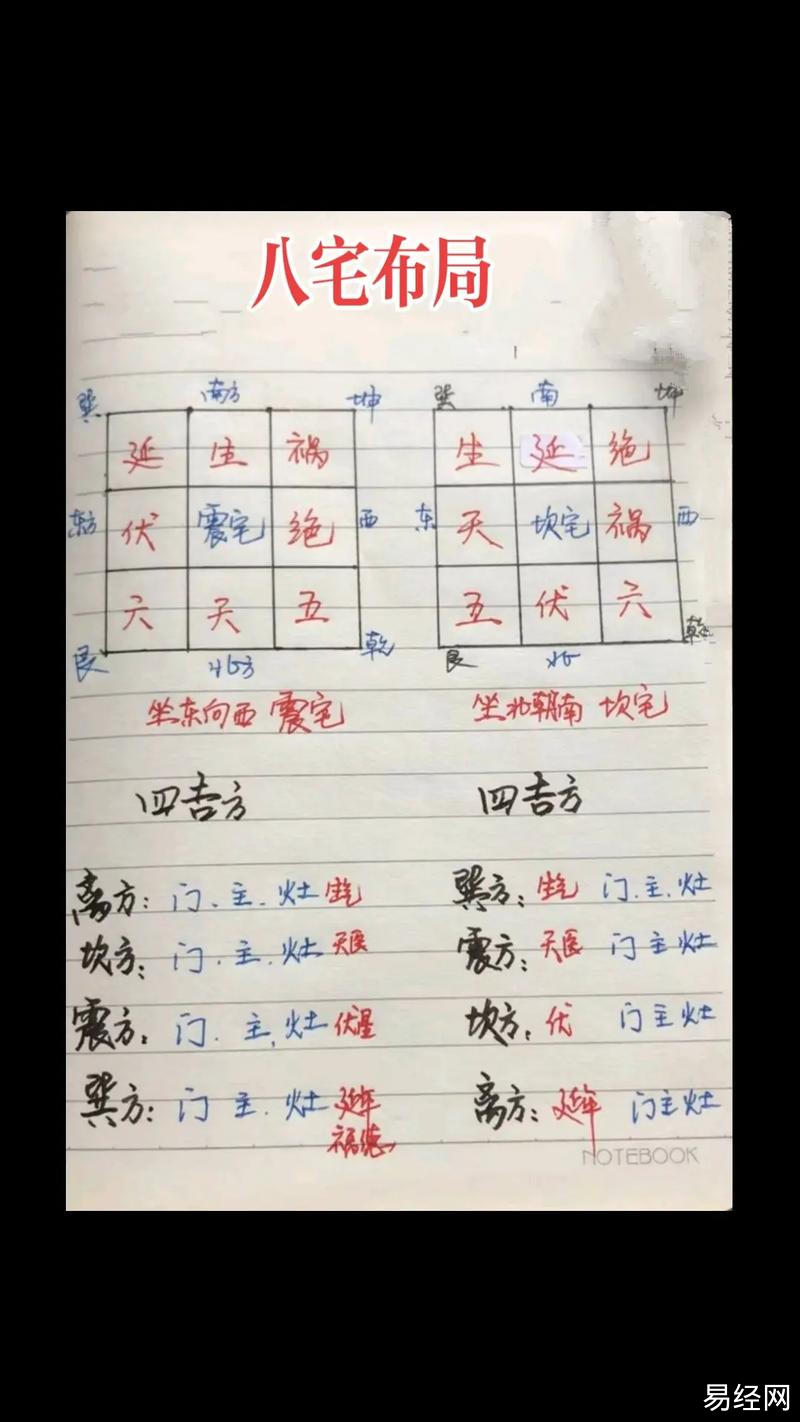 八宅布局
巽 南方 坤
延 生 祸
东方 伏 震宅 绝 西
六 天 五
艮 北方 乾
坐东向西 震宅
四吉方
离方：门、主、灶 生气
坎方：门、主、灶 天医
震方：门、主、灶 伏星
巽方：门 主、灶 延年
福德
巽 南 坤
生 延 绝
东 天 坎宅 祸 西
五 伏 六
艮 北 乾
坐北朝南 坎宅
四吉方
巽方：生气 门、主、灶
震方：天医 门主灶
坎方：伏 门主灶
离方：延年 门主灶
NOTEBOOK
易经网